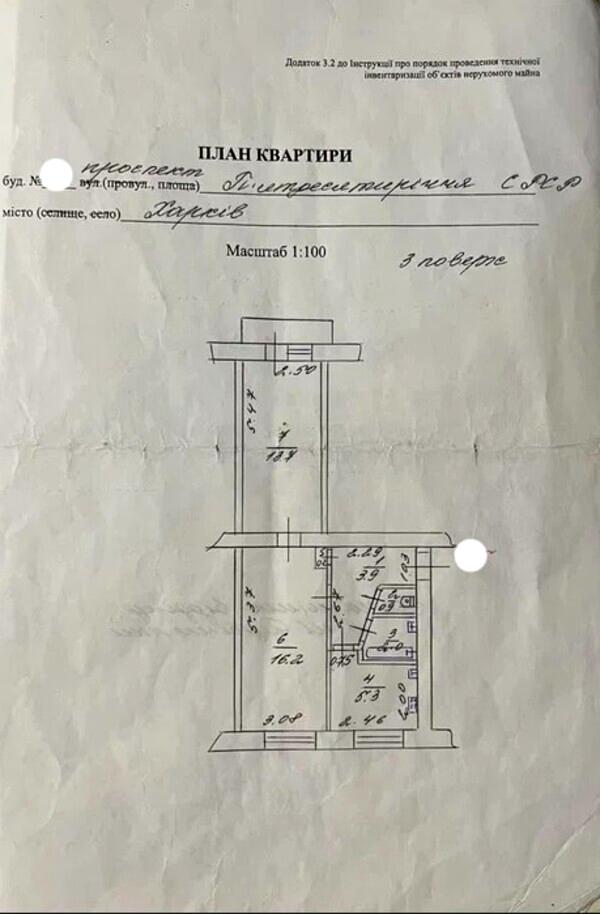 Додаток 3.2 до Інструкції про порядок проведення технічної
інвентаризації об'єктів нерухомого майна
ПЛАН КВАРТИРИ
проспект
буд. № вул.(провул., площа) П'ятдесятиріччя СРСР
місто (селище, село) Харків
Масштаб 1:100
3 поверх
2.50
5.47
7
13.7
5
2.29
1
3.9
1.03
2
0.9
5.37
2.67
3
2.0
6
16.2
0.75
4
5.3
2.00
3.08
2.46